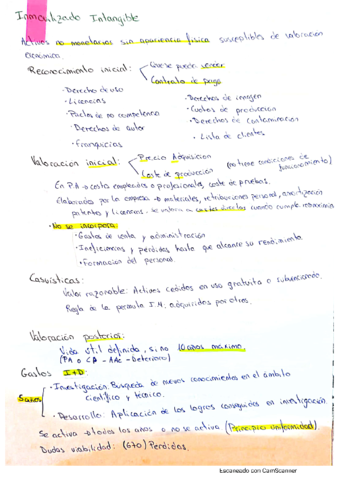 Inmovilizado Intangible
Activos no monetarios sin apariencia física susceptibles de valoración
económica.
Reconocimiento inicial: Que se pueda vender
Contrato de pago
· Derecho de uso
· Derechos de imagen
· Licencias
· Cuotas de producción
· Pactos de no competencia
· Derechos de contaminación
· Derechos de autor
· Lista de clientes
· Franquicias
Valoración inicial: Precio Adquisición
Coste de producción (poner condiciones de funcionamiento)
En P.A → costes empleados o profesionales, coste de pruebas.
Elaborados por la empresa → materiales, retribuciones personal, amortización
patentes y licencias. se valora a costes directos cuando cumple
· No se incorpora:
· Gastos de venta y administración
· Ineficiencias y pérdidas hasta que alcance su rendimiento.
· Formación del personal
Casuísticas:
Valor razonable: Activos cedidos en uso gratuito o subvencionado.
Regla de la permuta I.M. adquiridos por otros.
Valoración posterior:
Vida útil definida, si no 10 años máximo.
(PA o CP - AAc - Deterioro)
Gastos I+D:
5 años
· Investigación: Búsqueda de nuevos conocimientos en el ámbito
científico y técnico.
· Desarrollo: Aplicación de los logros conseguidos en investigación.
Se activa → todos los años o no se activa (Principio uniformidad)
Dudas viabilidad: (670) Pérdidas.
Escaneado con CamScanner